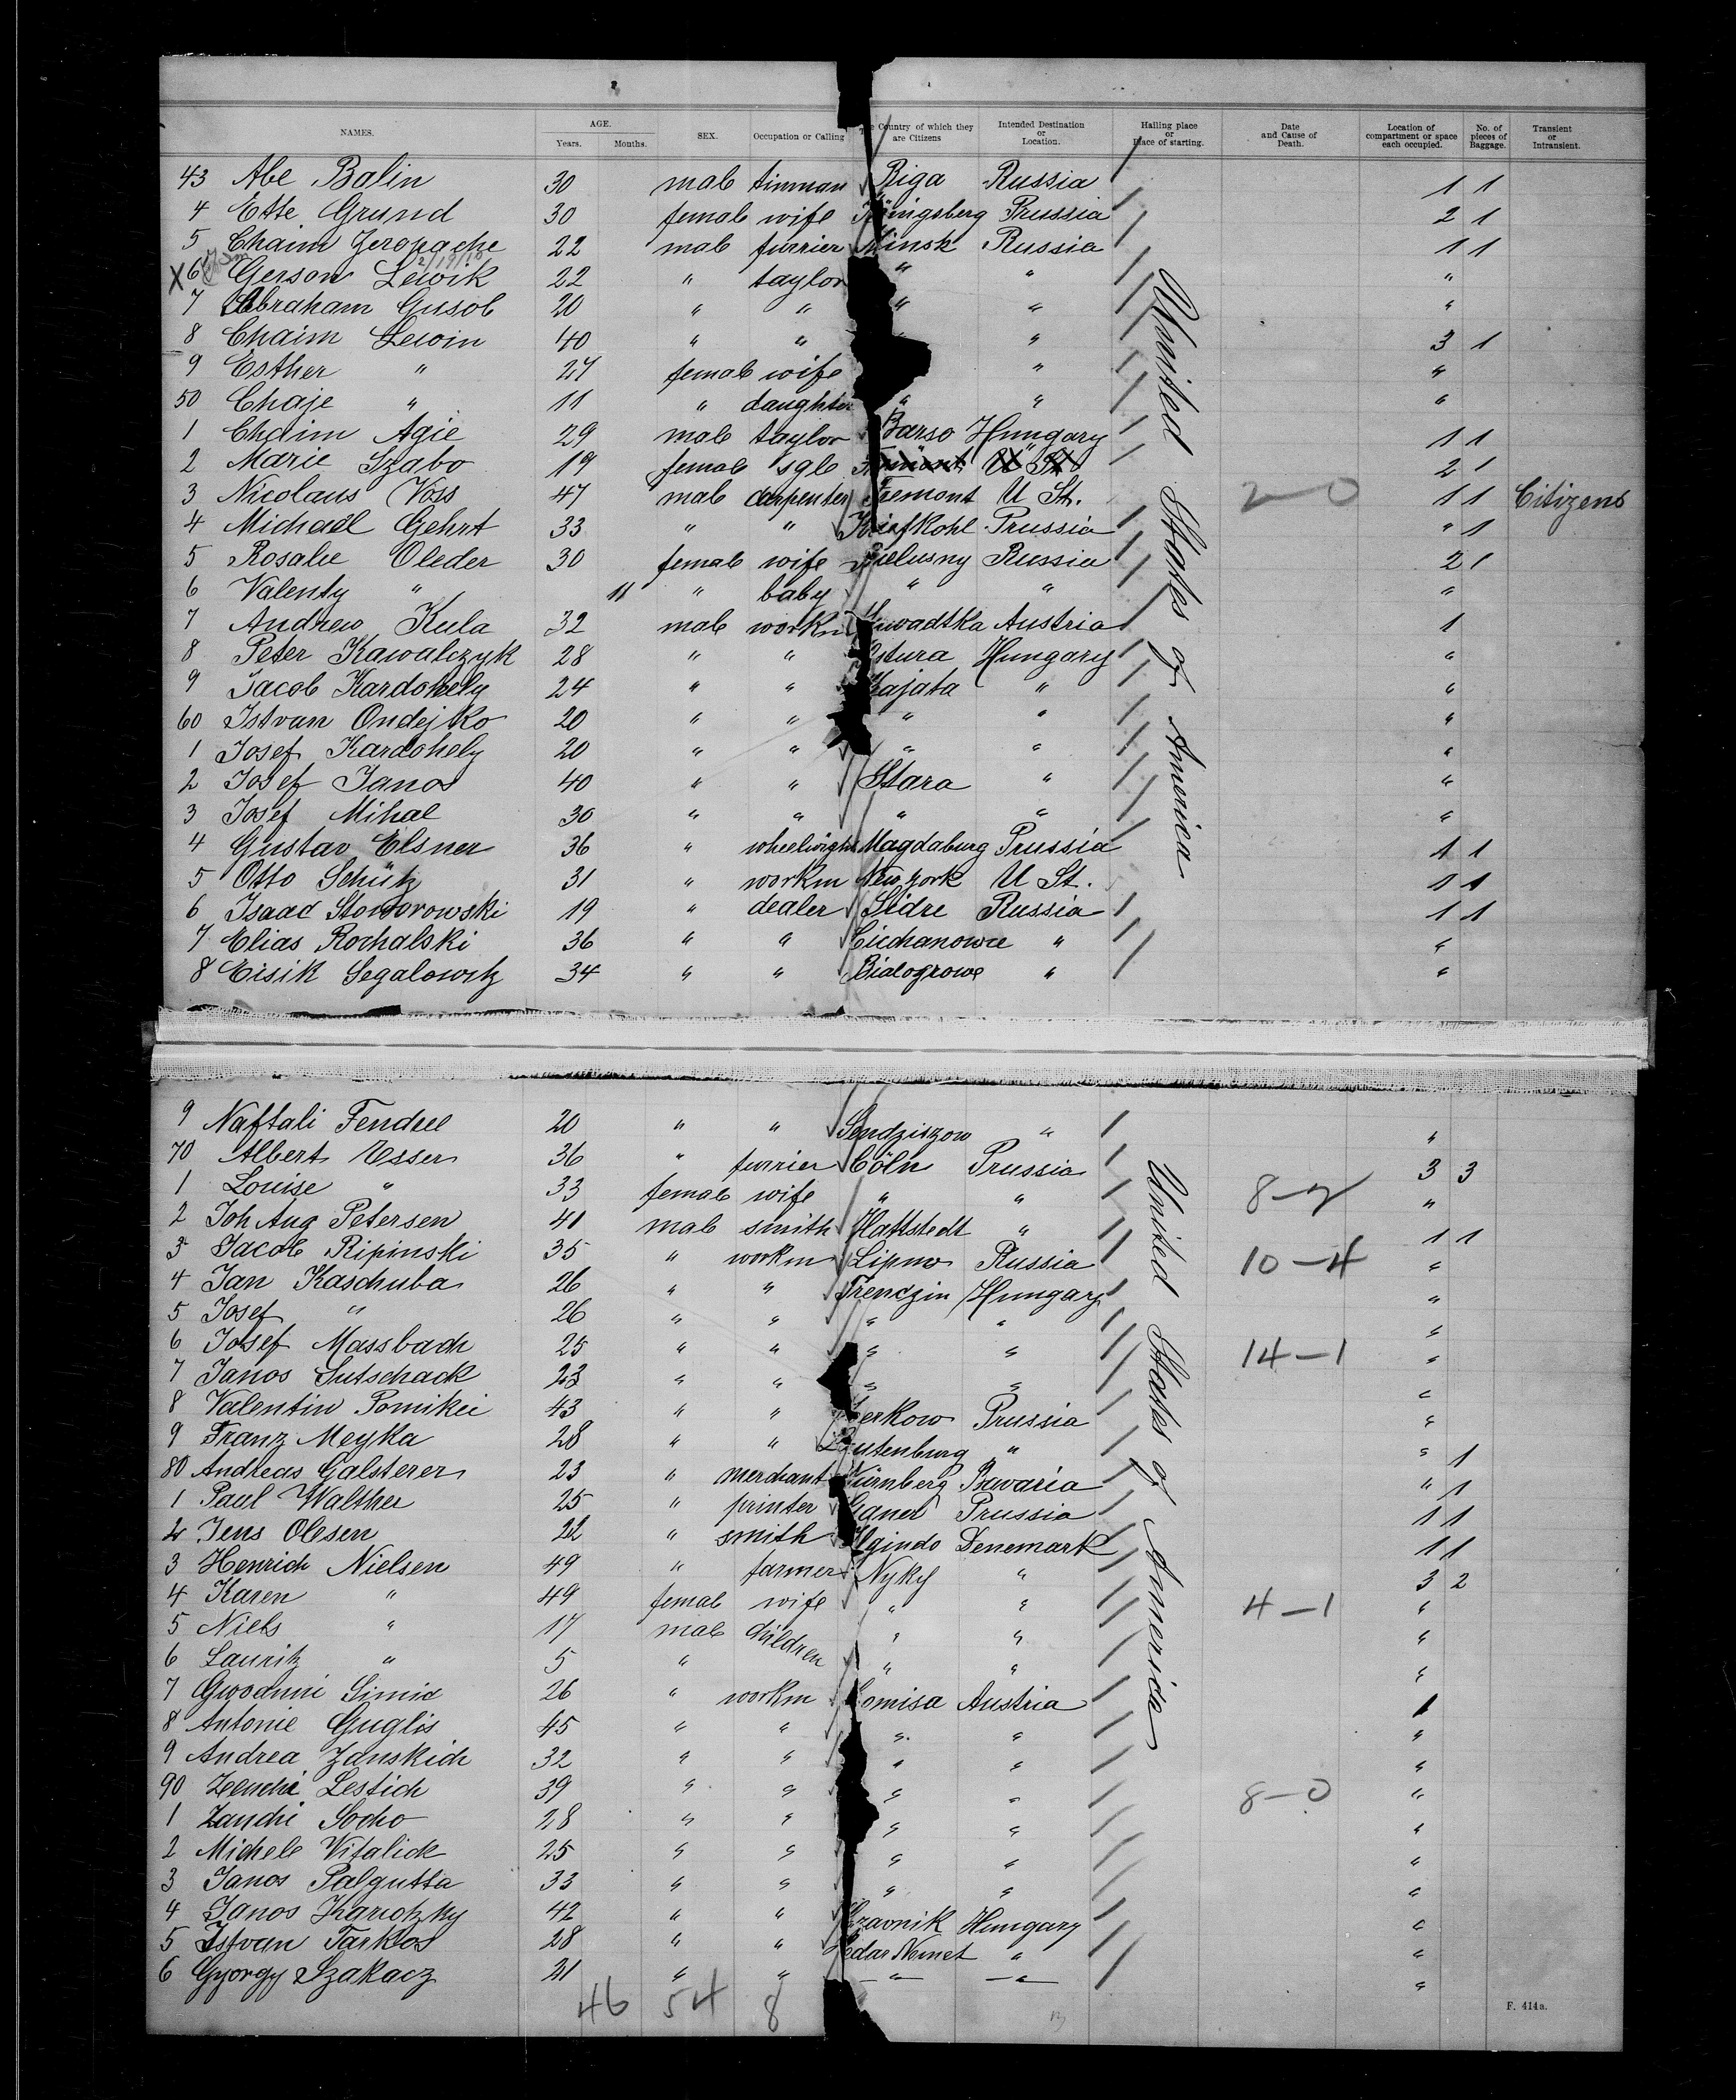 NAMES. AGE. Years. Months. SEX. Occupation or Calling Country of which they are Citizens Intended Destination or Location. Hailing place or Place of starting. Date and Cause of Death. Location of compartment or space each occupied. No. of pieces of Baggage. Transient or Intransient.
43 Abe Balin 30 male tinman Riga Russia 1 1
4 Ette Grund 30 female wife Königsberg Prussia 2 1
5 Chaim 22 male furrier Minsk Russia 1 1
X 6 Gerson Lewik 22 " taylor " " "
7 Abraham Gusob 20 " " " " "
8 Chaim Lewin 40 " " " 3 1
9 Esther " 27 female wife " "
50 Chaje " 11 " daughter " " "
1 Chaim Agie 29 male taylor Barso Hungary 1 1
2 Marie Szabo 19 female sgle " " 2 1
3 Nicolaus Voss 47 male carpenter Fremont U St. 2–0 1 1 Citizens
4 Michael Gehrt 33 " " Prussia " 1
5 Rosalie Oleder 30 female wife Russia 2 1
6 Valenty " 11 " baby " " "
7 Andrew Kula 32 male workm Austria 1
8 Peter Kawalczyk 28 " " Hungary "
9 Jacob Kardohely 24 " " Kajata " "
60 Istvan Ondejko 20 " " " " "
1 Josef Kardohely 20 " " " " "
2 Josef Janos 40 " " Stara " "
3 Josef Mihal 30 " " " " "
4 Gustav Elsner 36 " wheelwright Magdaburg Prussia 1 1
5 Otto Schütz 31 " workm New York U St. 1 1
6 Isaac Stoworowski 19 " dealer Sidre Russia 1 1
7 Elias Rochalski 36 " " Ciechanowce " "
8 Eisik Segalowitz 34 " " Bialogrowe " "
United States of America
9 Naftali Fendrel 20 " " Sendziszow " "
70 Albert Esser 36 " furrier Cöln Prussia 3 3
1 Louise " 33 female wife " " "
2 Joh Aug Petersen 41 male smith Hattstedt " 1 1
3 Jacob Ripinski 35 " workm Lipno Russia 10–4 "
4 Jan Kaschuba 26 " " Trenczin Hungary "
5 Josef " 26 " " " " "
6 Josef Massbach 25 " " " " 14–1 "
7 Janos Sutschack 23 " " " " "
8 Valentin Pomikei 43 " " Prussia "
9 Franz Meyka 28 " " " " 1
80 Andreas Galsterer 23 " merchant Nürnberg Bavaria " 1
1 Paul Walther 25 " printer Prussia 1 1
2 Jens Olesen 22 " smith Denemark 1 1
3 Henrich Nielsen 49 " farmer Nyky " 3 2
4 Karen " 49 female wife " " 4–1 "
5 Niels " 17 male children " " "
6 Lauritz " 5 " " " "
7 Simic 26 " workm Comisa Austria 1
8 Antonie Guglis 45 " " " " "
9 Andrea Zanskich 32 " " " " "
90 Lestich 39 " " " " 8–0 "
1 Zanchi Socho 28 " " " " "
2 Michele Vitalick 25 " " " " "
3 Janos Palgutta 33 " " " " "
4 Janos 42 " " Hungary "
5 Istvan Farkas 28 " " Nemet " "
6 Gyorgy Szakacz 21 " " " " "
United States of America
46 54 8
F. 414a.